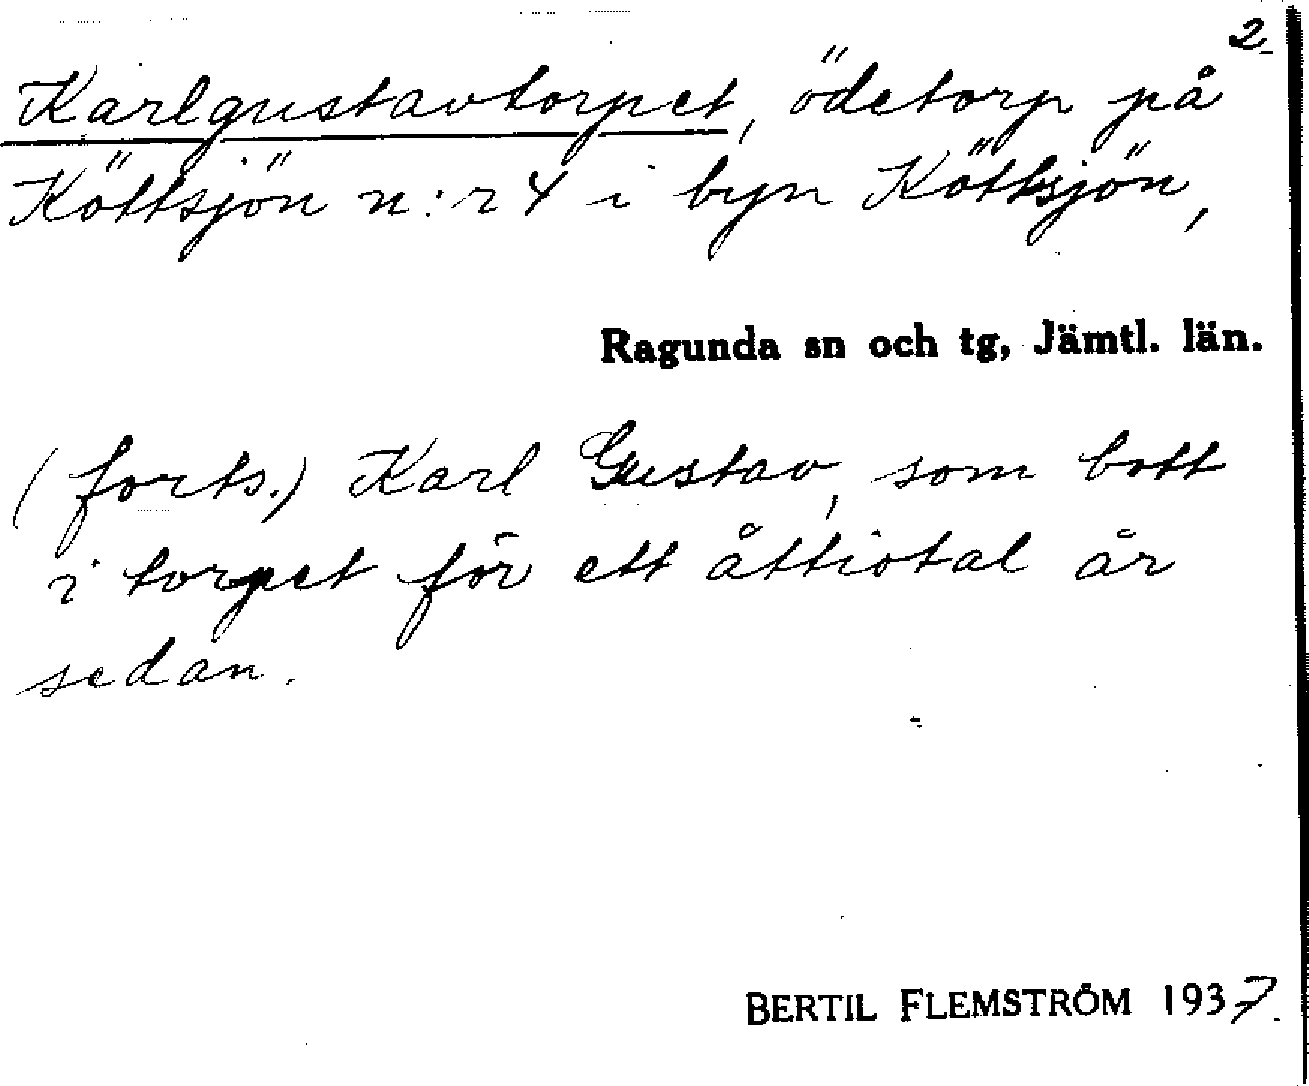 2.
Karlgustavtorpet, ödetorp på
Köttsjön n:r 4 i byn Köttsjön,
Ragunda sn och tg, Jämtl. län.
(forts.) Karl Gustav, som bott
i torpet för ett åttiotal år
sedan.
BERTIL FLEMSTRÖM 1937.